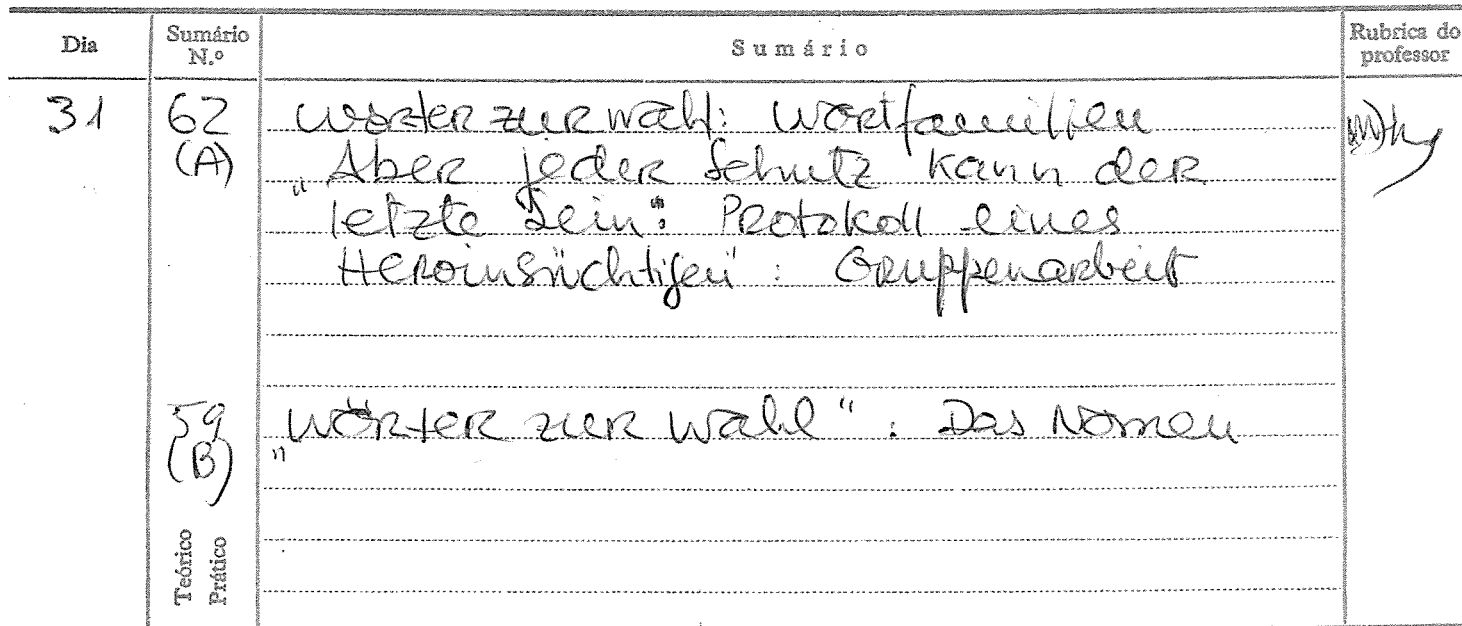 Dia
Sumário N.º
Sumário
Rubrica do professor
31
62 (A)
Wörter zur Wahl: Wortfamilien
"Aber jeder Schutz kann der
letzte Sein": Protokoll eines
Heroinsüchtigen": Gruppenarbeit
59 (B)
"Wörter zur Wahl": Das Nomen
Teórico
Prático